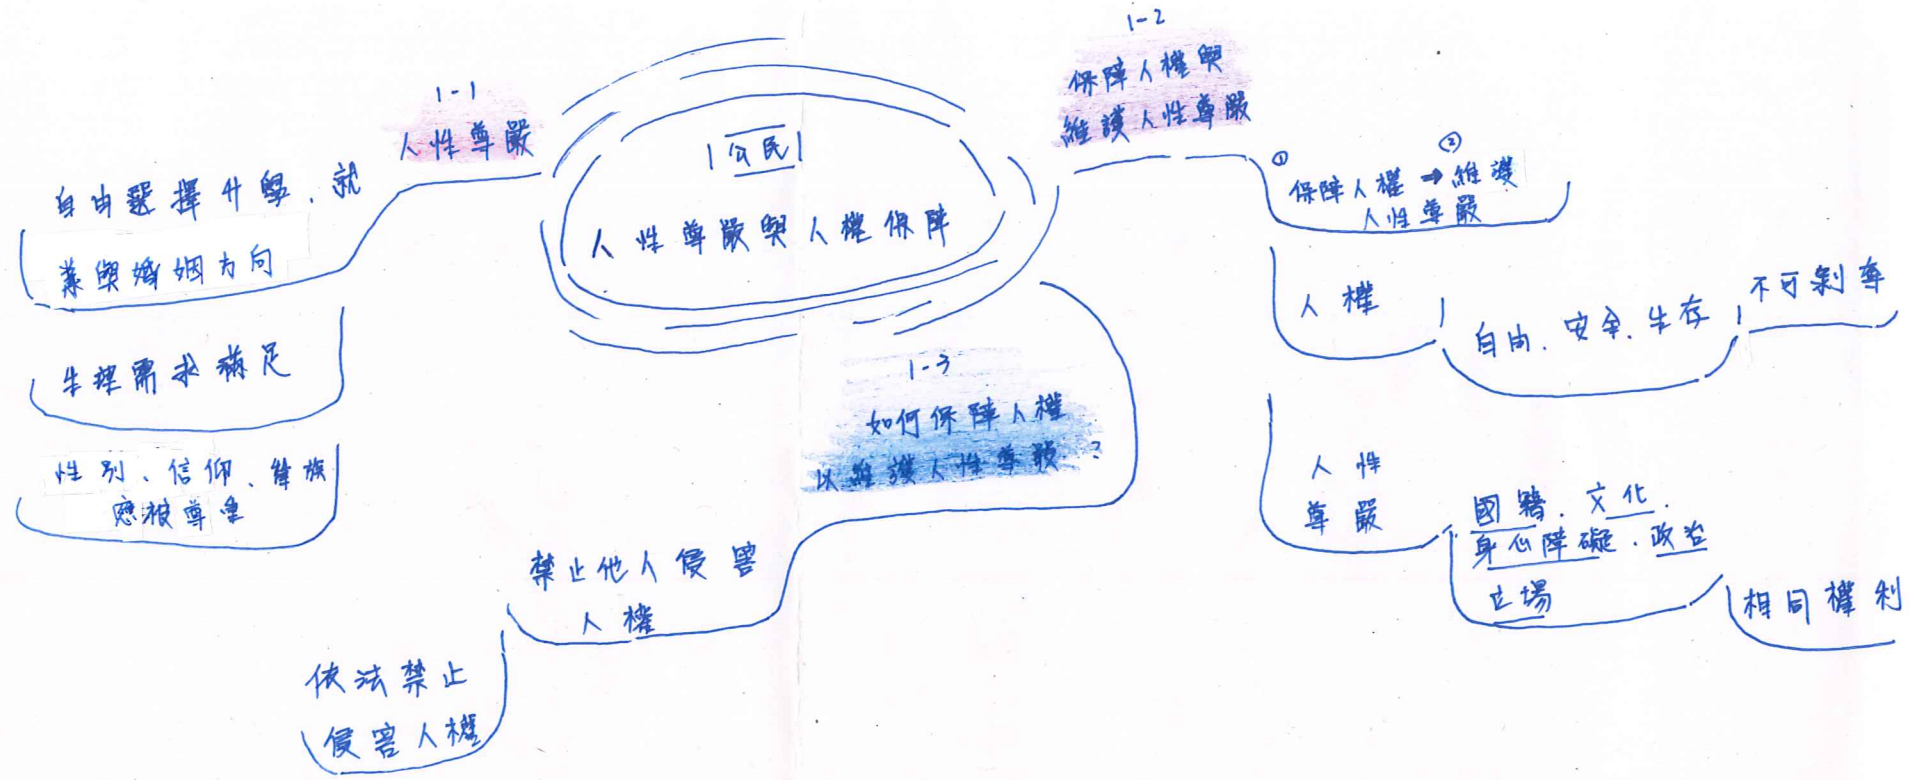 公民
人性尊嚴與人權保障
1-1
人性尊嚴
自由選擇升學、就
業與婚姻方向
生理需求滿足
性別、信仰、種族
應被尊重
1-2
保障人權與
維護人性尊嚴
① ②
保障人權➡維護
人性尊嚴
人權
自由、安全、生存
不可剝奪
人性
尊嚴
國籍、文化、
身心障礙、政治
立場
相同權利
1-3
如何保障人權
以維護人性尊嚴?
禁止他人侵害
人權
依法禁止
侵害人權